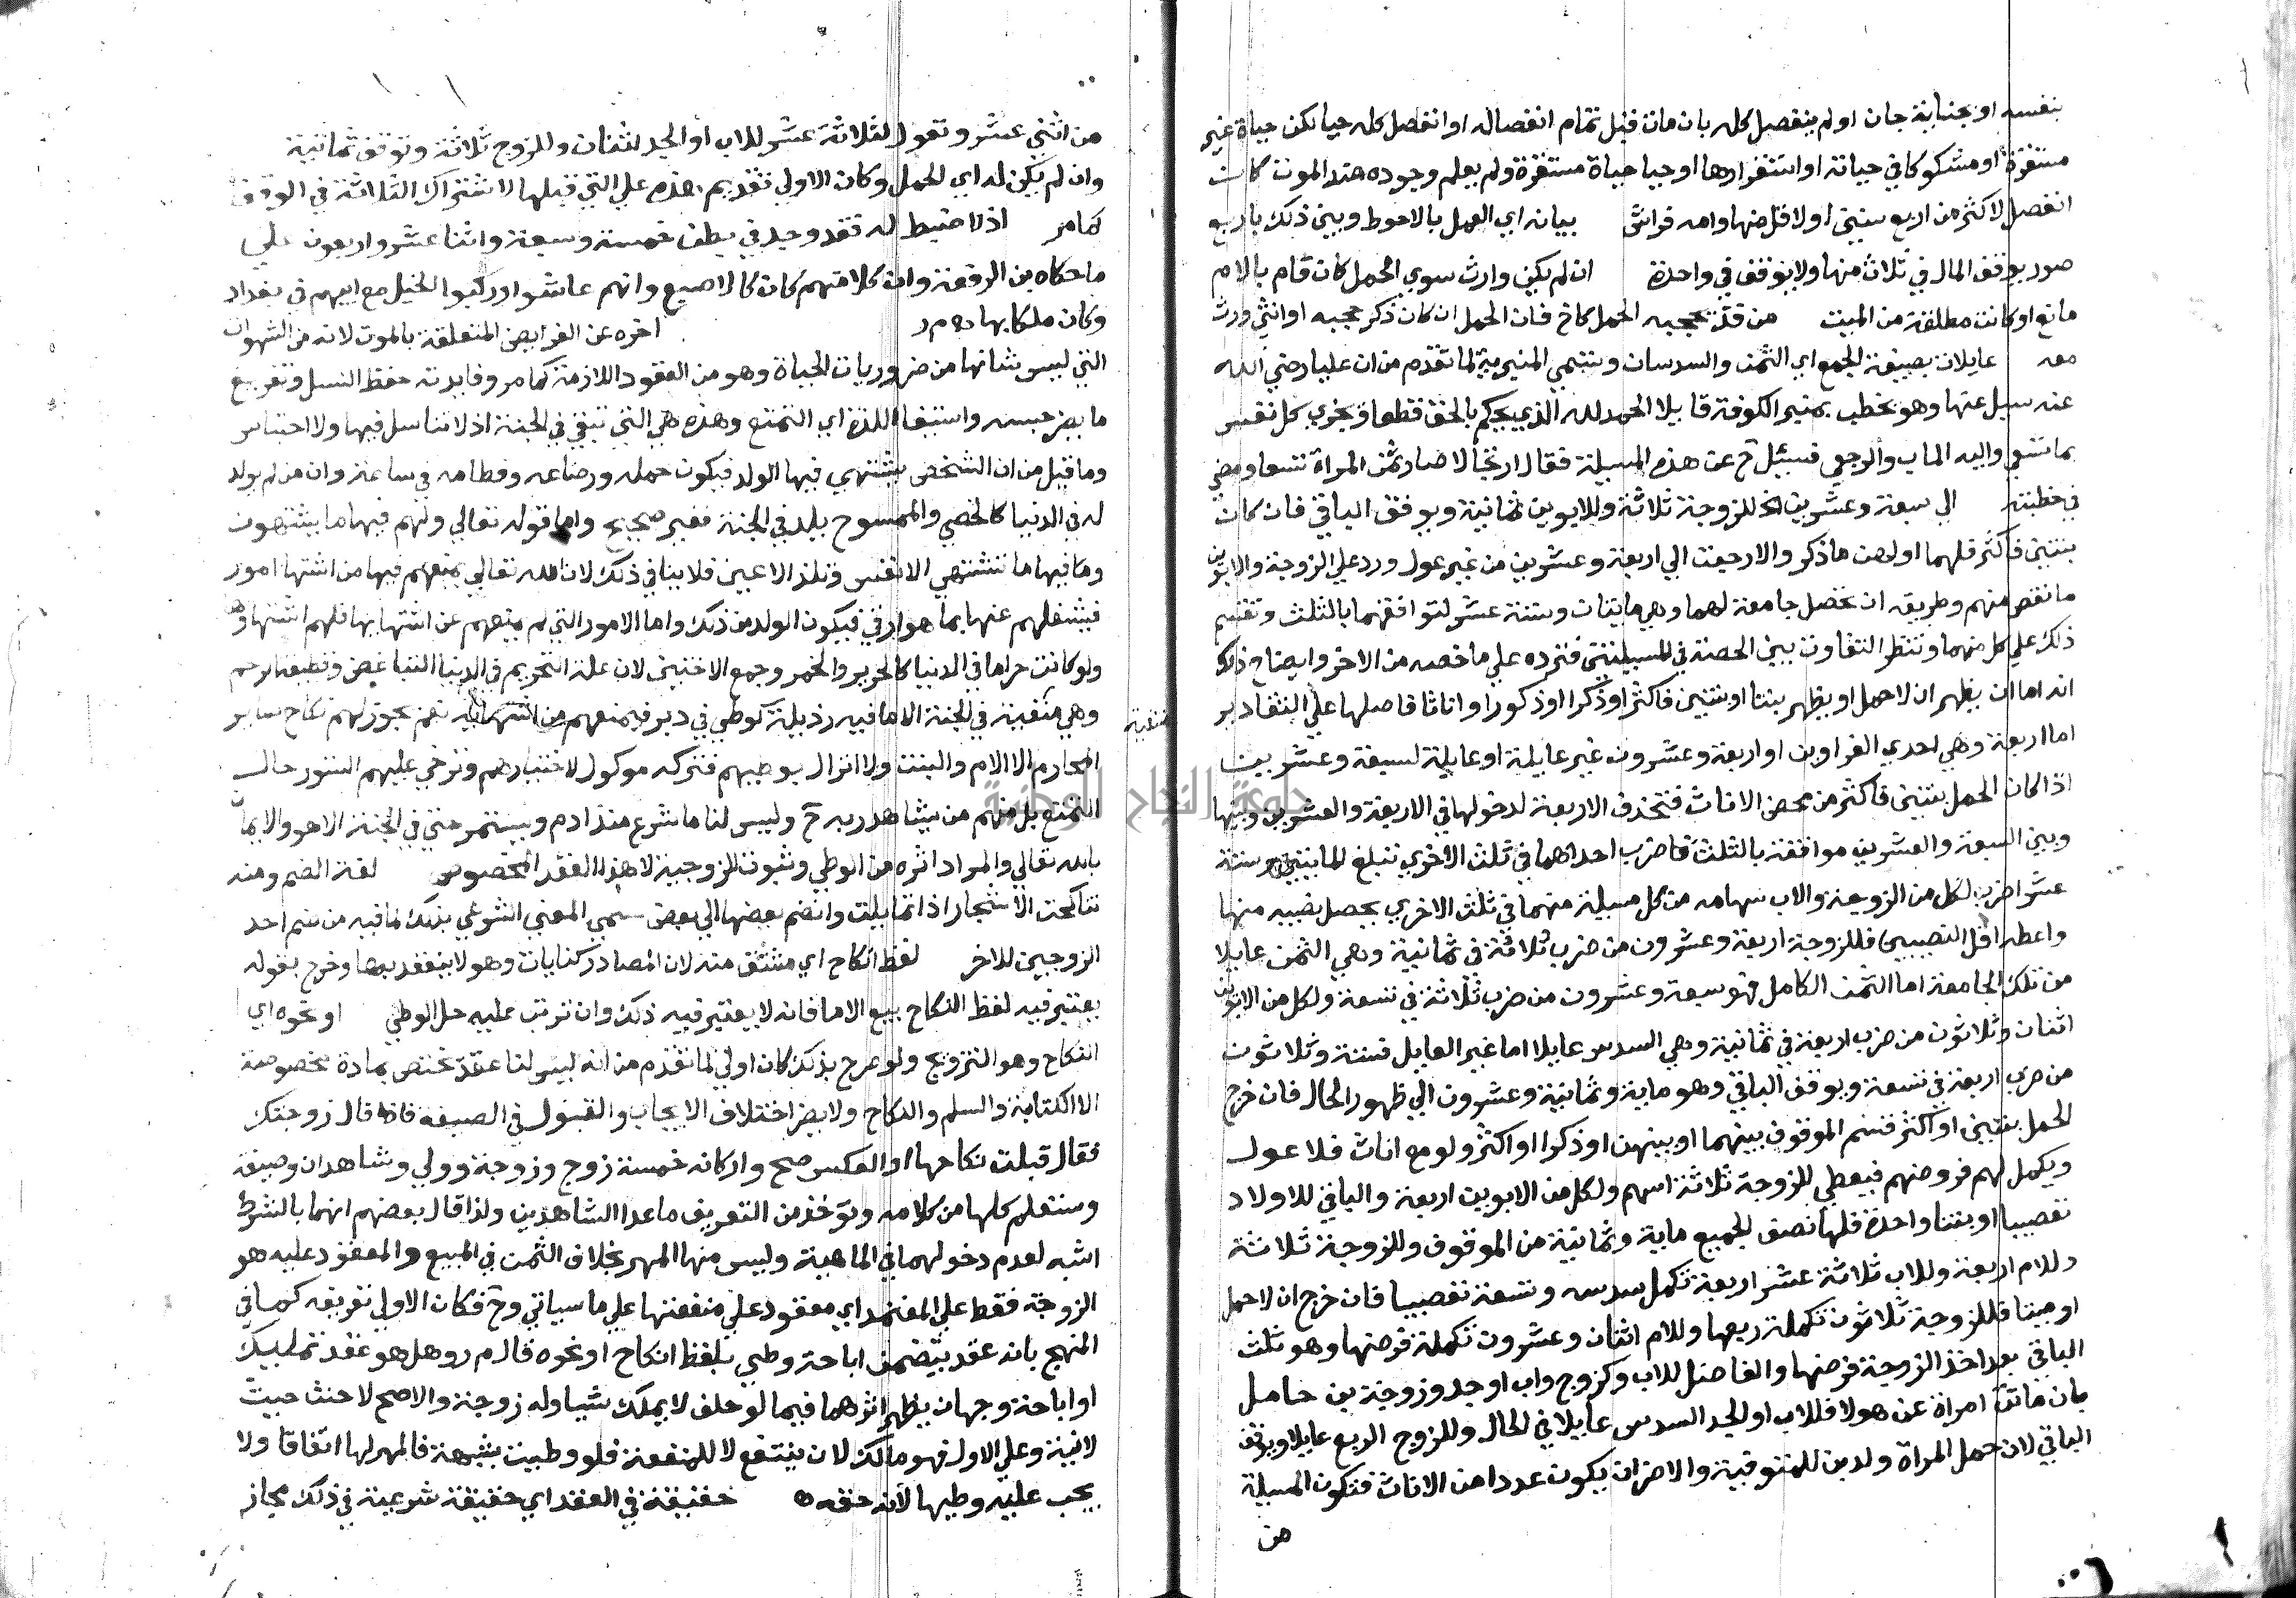 بنفسه او بجناية جان او لم ينفصل كله بان مات قبل تمام انفصاله او انفصل كله حيا لكن حياة غير
مستقرة او مشكوكا في حياته او استقرارها او حيا حياة مستقرة ولم يعلم وجوده عند الموت كان
انفصل لاكثر من اربع سنين او لاقل منها وامه فراش بيانه اي العمل بالاحوط وبين ذلك باربع
صور يوقف المال في ثلاث منها ولا يوقف في واحدة ان لم يكن وارث سوي الحمل كان قام بالام
مانع او كانت مطلقة من الميت من قد يحجبه الحمل كاخ فان الحمل ان كان ذكر حجبه او انثي ورث
معه عايلان بصيغة الجمع اي الثمن والسدسان وتسمي المنبرية لما تقدم من ان عليا رضي الله
عنه سيل عنها وهو يخطب بمنبر الكوفة قايلا الحمد لله الذي يحكم بالحق قطعا ويجزي كل نفس
بما تسعي واليه الماب والرجعي فسئل ح عن هذه المسيلة فقال ارتجالا صار ثمن المراة تسعا ومضي
في خطبته الي سبعة وعشرين الخ للزوجة ثلاثة وللابوين ثمانية ويوقف الباقي فان كان
بنتين فاكثر فلهما اولهن ما ذكر والا رجعت الي اربعة وعشرين من غير عول ورد علي الزوجة والابوين
ما نقص منهم وطريقه ان تحصل جامعة لهما وهي مايتان وستة عشر لتوافقهما بالثلث وتقسم
ذلك علي كل منهما وتنظر التفاوت بين الحصة في المسيلتين فترده علي ما خصه من الاخر وايضاح ذلك
انه اما ان يظهر ان لا حمل او يظهر بنتا او بنتين فاكثر او ذكرا او ذكورا او اناثا فاصلها علي التقادير
اما اربعة وهي احدي الغراوين او اربعة وعشرون غير عايلة او عايلة لسبعة وعشرين
اذا كان الحمل بنتين فاكثر من محض الاناث فتحذف الاربعة لدخولها في الاربعة والعشرين وبينها
وبين السبعة والعشرين موافقة بالثلث فاضرب احداهما في ثلث الاخري تبلغ المايتين وستة
عشر اضرب لكل من الزوجة والاب سهامه من كل مسيلة منهما في ثلث الاخري يحصل نصيبه منها
واعطه اقل النصيبين فللزوجة اربعة وعشرون من ضرب ثلاثة في ثمانية وهي الثمن عايلا
من تلك الجامعة اما الثمن الكامل فهو سبعة وعشرون من ضرب ثلاثة في تسعة ولكل من الابوين
اثنان وثلاثون من ضرب اربعة في ثمانية وهي السدس عايلا اما غير العايل فستة وثلاثون
من ضرب اربعة في تسعة ويوقف الباقي وهو ماية وثمانية وعشرون الي ظهور الحال فان خرج
الحمل بنتين او اكثر قسم الموقوف بينهما او بينهن او ذكرا او اكثر ولو مع اناث فلا عول
ويكمل لهم فروضهم فيعطي للزوجة ثلاثة اسهم ولكل من الابوين اربعة والباقي للاولاد
تعصيبا او بنتا واحدة فلها نصف الجميع ماية وثمانية من الموقوف وللزوجة ثلاثة
وللام اربعة وللاب ثلاثة عشر اربعة تكمل سدسه وتسعة تعصيبا فان خرج ان لا حمل
او ميتا فللزوجة ثلاثون تكملة ربعها وللام اثنان وعشرون تكملة فرضها وهو ثلث
الباقي بعد اخذ الزوجة فرضها والفاضل للاب وكزوج واب او جد وزوجة بن حامل
بان ماتت امراة عن هولا فللاب او الجد السدس عايلا في الحال وللزوج الربع عايلا ويوقف
الباقي لان حمل المراة ولد بن للمتوفية والاضر ان يكون عددا من الاناث فتكون المسيلة
من
من اثني عشر وتعول لثلاثة عشر للاب او الجد اثنان وللزوج ثلاثة وتوقف ثمانية
وان لم يكن له اي الحمل وكان الاولي تقديم هذه علي التي قبلها لاشتراك الثلاثة في الوقف
كما مر اذ لا ضبط له فقد وجد في بطن خمسة وسبعة واثنا عشر واربعون علي
ما حكاه بن الرفعة وان كلا منهم كان كالاصبع وانهم عاشوا وركبوا الخيل مع ابيهم في بغداد
وكان ملكا بها اهـ م ر اخره عن الفرايض المتعلقة بالموت لانه من الشهوات
التي ليس شانها من ضروريات الحياة وهو من العقود اللازمة كما مر وفايدته حفظ النسل وتفريغ
ما يضر حبسه واستيفا اللذة اي التمتع وهذه هي التي تبقي في الجنة اذ لا تناسل فيها ولا احتباس
وما قيل من ان الشخص يشتهي فيها الولد فيكون حمله ورضاعه وفطامه في ساعة وان من لم يولد
له في الدنيا كالخصي والممسوح يلد في الجنة فغير صحيح واما قوله تعالي ولهم فيها ما يشتهون
وما فيها ما تشتهي الانفس وتلذ الاعين فلا ينافي ذلك لان الله تعالي يمنعهم فيها من اشتها امور
فيشغلهم عنها بما هو ارقي فيكون الولد من ذلك واما الامور التي لم يمنعهم عن اشتهايها فلهم اشتهاوها
ولو كانت حراما في الدنيا كالحرير والخمر وجمع الاختين لان علة التحريم في الدنيا التباغض وقطيعة الرحم
وهي منفية في الجنة الا ما فيه رذيلة كوطي في دبر فيمنعهم من اشتهايه نعم يجوز لهم نكاح ساير
المحارم الا الام والبنت ولا انزال بوطيهم فتركه موكول لاختيارهم وترخي عليهم الستور حال
التمتع بل منهم من يشاهد ربه ح وليس لنا ما شرع منذ ادم ويستمر حتي في الجنة الا هو والايمان
بالله تعالي والمراد اثره من الوطي وثبوت الزوجية لا هذا العقد المخصوص لغة الضم ومنه
تناكحت الاشجار اذا تمايلت وانضم بعضها الي بعض سمي المعني الشرعي بذلك لما فيه من ضم احد
الزوجين للاخر لفظ انكاح اي مشتق منه لان المصادر كنايات وهو لا ينعقد بها وخرج بقوله
يعتبر فيه لفظ النكاح بيع الاما فانه لا يعتبر فيه ذلك وان ترتب عليه حل الوطي او نحوه اي
النكاح وهو التزويج ولو صرح بذلك كان اولي لما تقدم من انه ليس لنا عقد يختص بمادة مخصوصة
الا الكتابة والسلم والنكاح ولا يضر اختلاف الايجاب والقبول في الصيغه فاذا قال زوجتك
فقال قبلت نكاحها او العكس صح واركانه خمسة زوج وزوجة وولي وشاهدان وصيغة
وستعلم كلها من كلامه وتؤخذ من التعريف ما عدا الشاهدين ولذا قال بعضهم انهما بالشرط
اشبه لعدم دخولهما في الماهية وليس منها المهر بخلاف الثمن في المبيع والمعقود عليه هو
الزوجة فقط علي المعتمد اي معقود علي منفعتها علي ما سياتي وح فكان الاولي تعريفه كما في
المنهج بانه عقد يتضمن اباحة وطي بلفظ انكاح او نحوه قال م ر وهل هو عقد تمليك
او اباحة وجهان يظهر اثرهما فيما لو حلف لا يملك شيا وله زوجة والاصح لا حنث حيث
لا نية وعلي الاول فهو مالك لان ينتفع لا للمنفعة فلو وطيت بشبهة فالمهر لها اتفاقا ولا
يجب عليه وطيها لانه حقه حقيقة في العقد اي حقيقة شرعية في ذلك مجاز
جامعة النجاح الوطنية